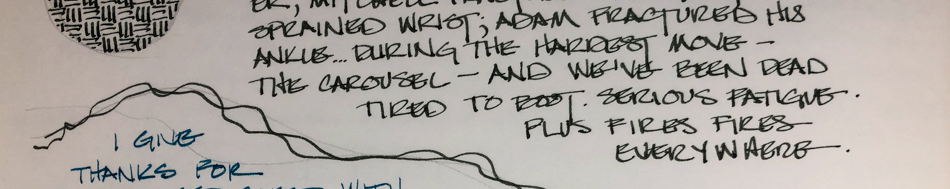 ER, MITCHELL
SPRAINED WRIST; ADAM FRACTURED HIS
ANKLE... DURING THE HARDEST MOVE -
THE CAROUSEL - AND WE'VE BEEN DEAD
TIRED TO BOOT. SERIOUS FATIGUE.
PLUS FIRES FIRES
EVERYWHERE.
I GIVE
THANKS FOR
WITH